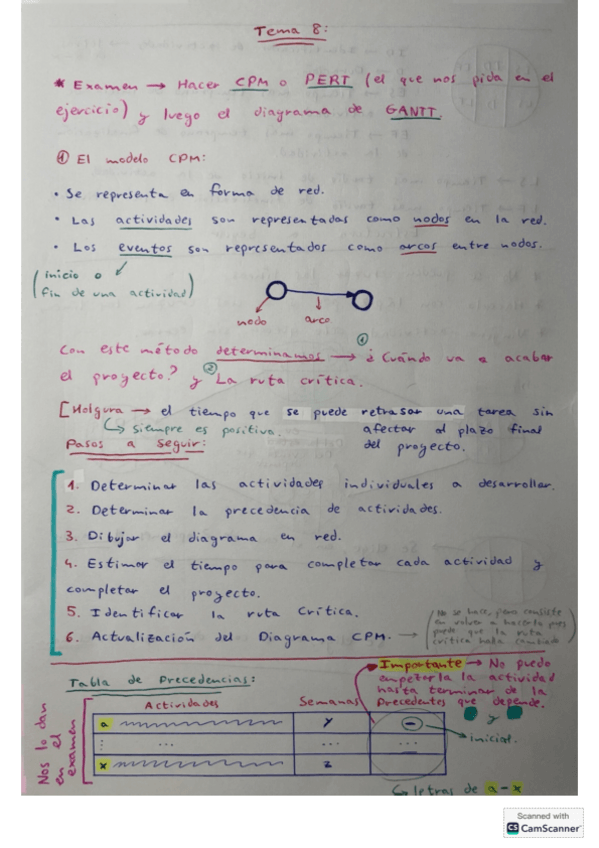 Tema 8:
* Examen → Hacer CPM o PERT (el que nos pida en el
ejercicio) y luego el diagrama de GANTT.
① El modelo CPM:
• Se representa en forma de red.
• Las actividades son representadas como nodos en la red.
• Los eventos son representados como arcos entre nodos.
(inicio o
fin de una actividad)
nodo
arco
Con este método determinamos → ① ¿Cuándo va a acabar
el proyecto? y ② La ruta crítica.
[Holgura → el tiempo que se puede retrasar una tarea sin
↳ siempre es positivo.
afectar al plazo final
del proyecto.
Pasos a seguir:
1. Determinar las actividades individuales a desarrollar.
2. Determinar la precedencia de actividades.
3. Dibujar el diagrama en red.
4. Estimar el tiempo para completar cada actividad y
completar el proyecto.
5. Identificar la ruta Crítica.
6. Actualización del Diagrama CPM. →
(No se hace, pero consiste
en volver a hacerlo pues
puede que la ruta
crítica haya cambiado)
Importante → No puedo
empezar la actividad
hasta terminar de la
Precedentes que depende.
y
Tabla de Precedencias:
Nos lo dan
en el
examen
Actividades
Semanas
a
y
-
→ inicial.
⋮ ... ... ...
x
z
↳ letras de a-x
Scanned with
CS CamScanner